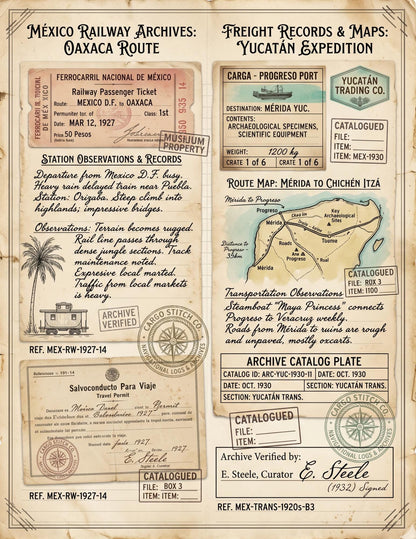 MÉXICO RAILWAY ARCHIVES:
OAXACA ROUTE
FERROCARRIL NACIONAL DE MÉXICO
Railway Passenger Ticket
Route: MEXICO D.F. to OAXACA
Class: 1st
Date: MAR 12, 1927
Price: 50 Pesos
MUSIJUM
PROPERTY
STATION OBSERVATIONS & RECORDS
Departure from Mexico D.F. busy.
Heavy rain delayed train near Puebla.
Station: Orizaba. Steep climb into
highlands; impressive bridges.
Observations: Terrain becomes rugged.
Rail line passes through
dense jungle sections. Track
maintenance noted.
Expresive local marted.
Traffic from local markets
is heavy.
ARCHIVE
VERIFIED
CARGO STITCH CO.
NAVIGATIONAL LOGS & ARCHIVES
REF. MEX-RW-1927-14
Salvoconducto Para Viaje
Travel Permit
E. Steele
CATALOGUED
FILE: BOX 3
ITEM: ITEM:
REF. MEX-RW-1927-14
FREIGHT RECORDS & MAPS:
YUCATÁN EXPEDITION
CARGA - PROGRESO PORT
DESTINATION: MÉRIDA YUC.
CONTENTS:
ARCHAEOLOGICAL SPECIMENS,
SCIENTIFIC EQUIPMENT
WEIGHT: 1200 kg
CRATE 1 of 6 CRATE 1 of 6
YUCATÁN
TRADING CO.
CATALOGUED
FILE:
ITEM:
ITEM: MEX-1930
ROUTE MAP: MÉRIDA TO CHICHÉN ITZÁ
Mérida to Progreso
Progreso
Key
Archaeological
Sites
Mérida
Roads
Are
Progreso
Rual
Toume
Distance to
Progreso
35km
Mérida
CATALOGUED
FILE: BOX 3
ITEM: 1100
Transportation Observations
Steamboat "Maya Princess" connects
Progreso to Veracruz weekly.
Roads from Mérida to ruins are rough
and unpaved, mostly oxcarts.
ARCHIVE CATALOG PLATE
CATALOG ID: ARC-YUC-1930-11 DATE: OCT. 1930
DATE: OCT. 1930 SECTION: YUCATÁN TRANS.
SECTION: YUCATÁN TRANS.
CATALOGUED
FILE:
ITEM:
CARGO STITCH CO.
NAVIGATIONAL LOGS & ARCHIVES
Archive Verified by:
E. Steele, Curator E. Steele
(1932) Signed
REF. MEX-TRANS-1920s-B3